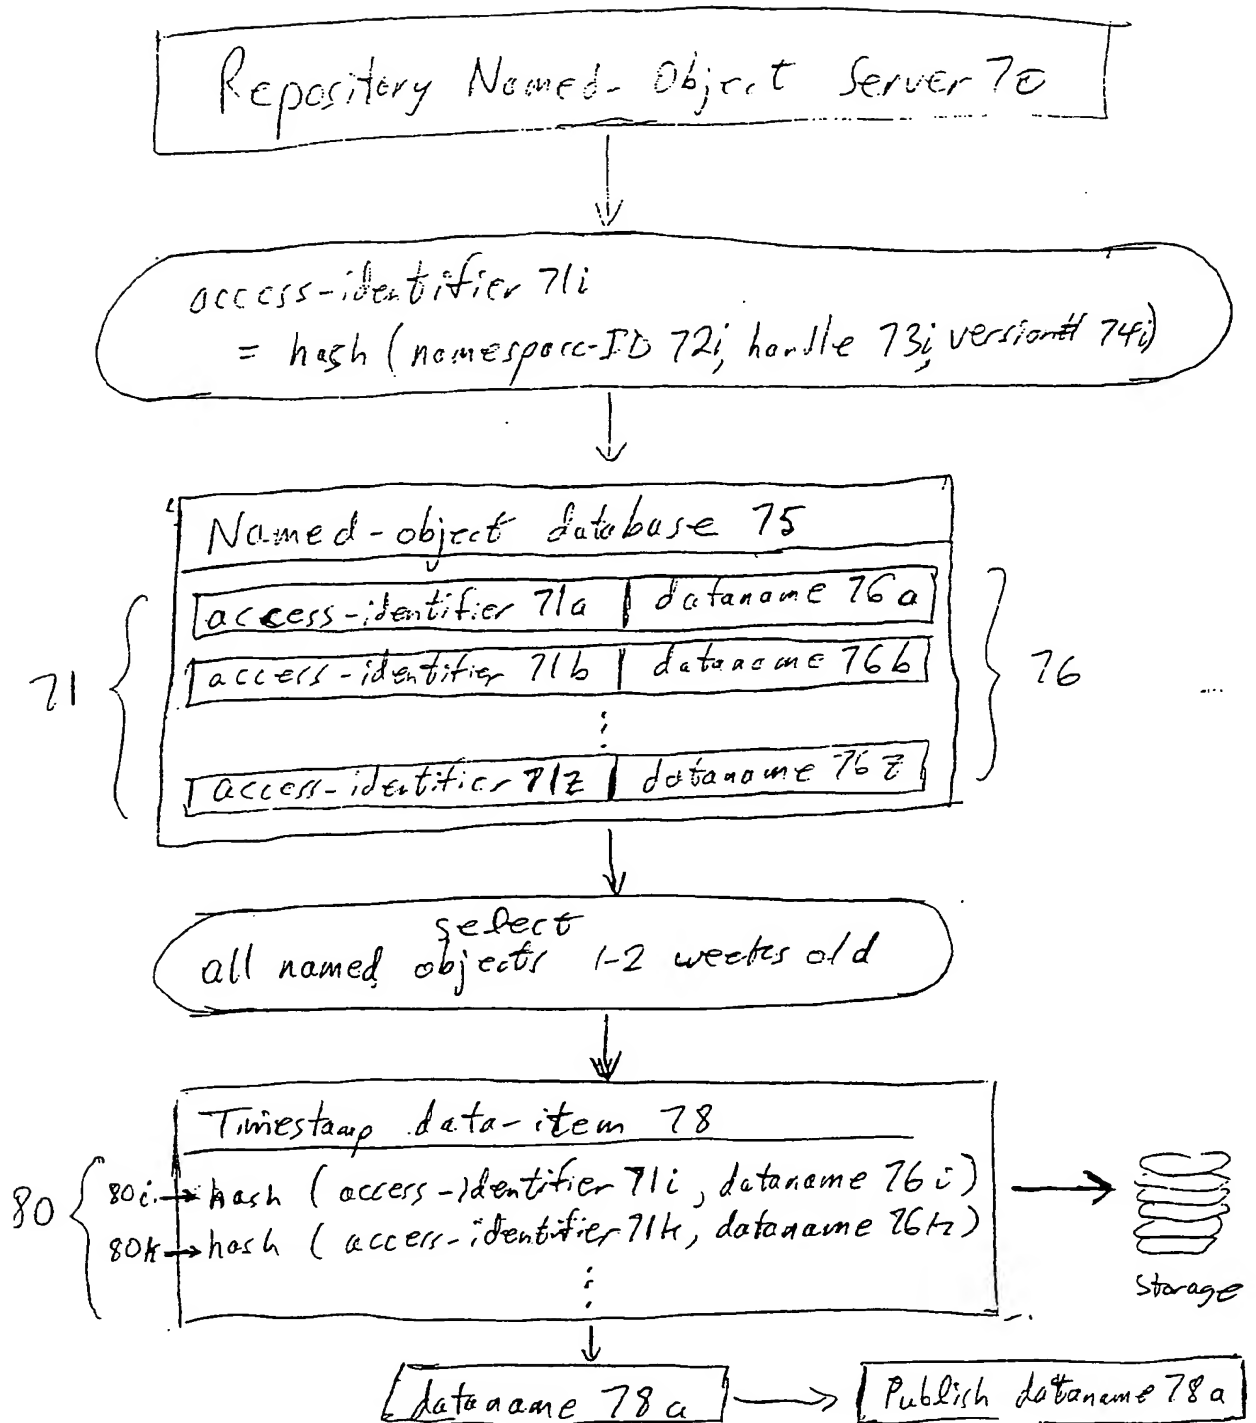 Repository Named-Object Server 70
access-identifier 71i
= hash (namespace-ID 72i, handle 73i, version# 74i)
Named-object database 75
access-identifier 71a dataname 76a
71
access-identifier 71b dataname 76b
76
...
access-identifier 71z dataname 76z
select
all named objects 1-2 weeks old
Timestamp data-item 78
80
80i → hash (access-identifier 71i, dataname 76i)
80k → hash (access-identifier 71k, dataname 76k)
storage
dataname 78a
Publish dataname 78a